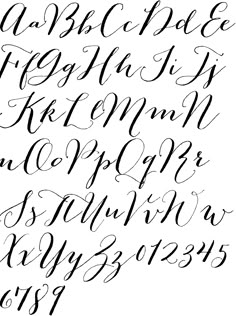 AaBbCcDdEe
FfGgHhIiJj
KkLlMmN
nOoPpQqRr
SsTtUuVvWw
XxYyZz012345
6789